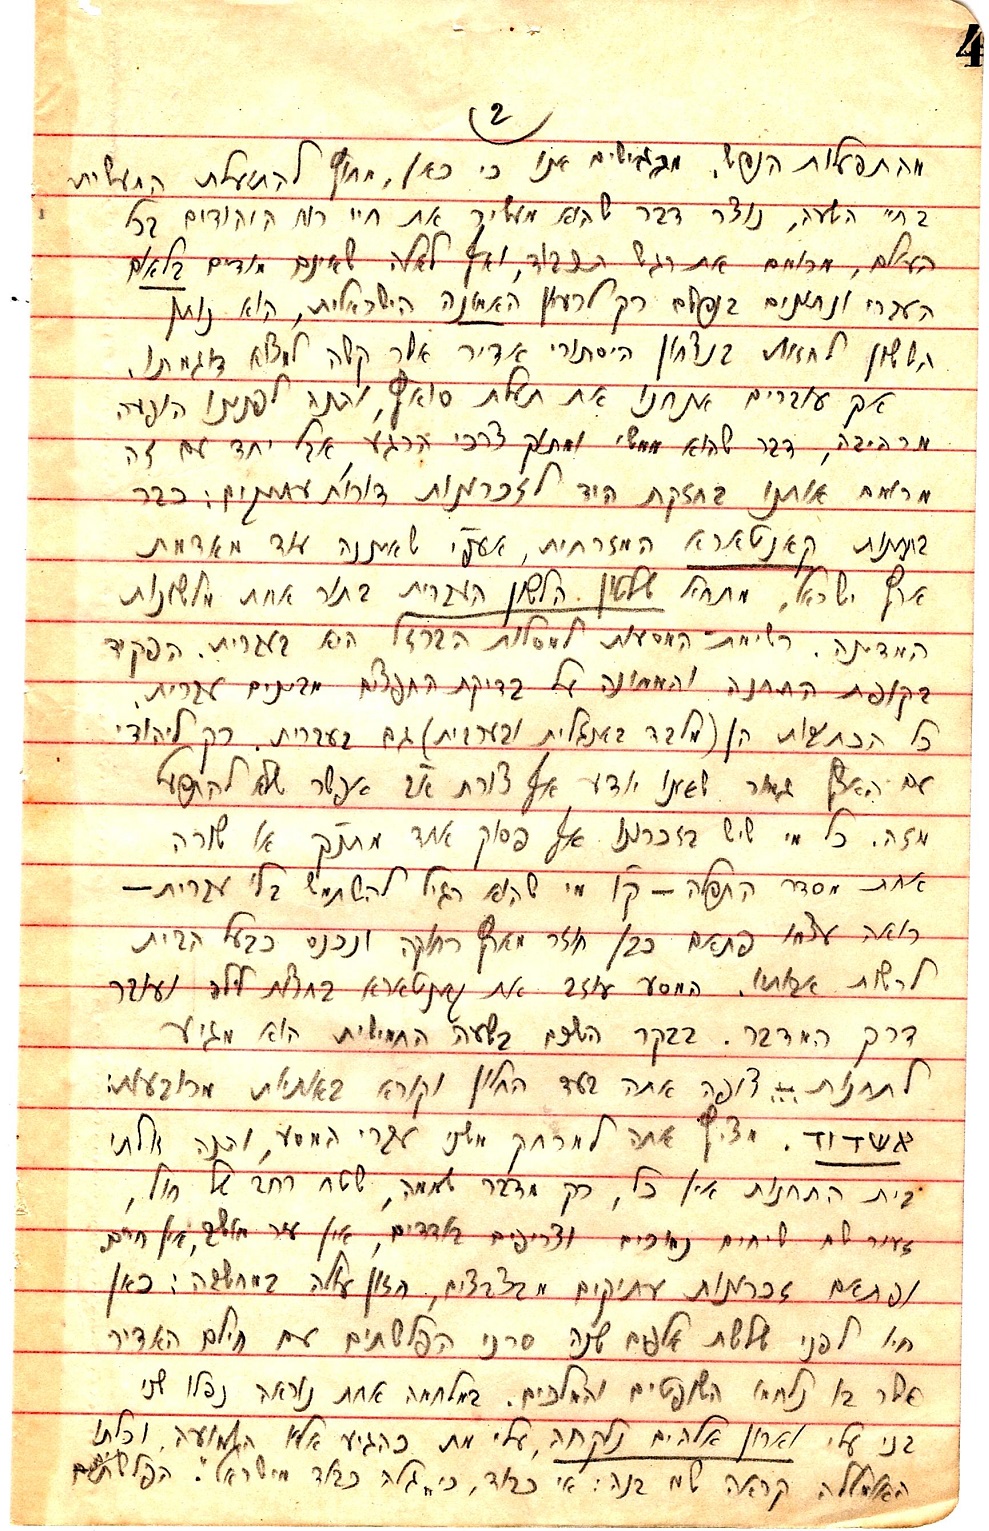 4
2
מהתפעלות הנפש. מרגישים אנו כי כאן, מחוץ להתעלת המעשית
בחיי השעה, נוצר דבר שהוא מעשיר את חיי רוח היהודים בכל
העולם, מרומם את רגש הכבוד, ואף לאלה שאינם מודים בלאום
העברי ונתונים בנפשם רק לרעיון האמונה הישראלית, הוא נותן
הששון לחזות בנצחון היסתורי אדיר אשר קשה למצוא דוגמתו.
אך עוברים אנחנו את תעלת סואץ, והנה לפנינו הופעה
מרהיבה, דבר שהוא ממשי ומתוך צרכי הרגע אבל יחד עם זה
מרומם אותנו בחזקת היד לזכרונות דורות עתיקים: כבר
בתחנות קאנטארא המזרחית, אעפ"י שאיננה עוד מאדמת
ארץ ישראל, מתחיל שלטון הלשון העברית בתור אחת מלשונות
המדינה. רשימת המסעות למסלות הברזל היא בעברית. הפקיד
בקופת התחנה והממונה על בדיקת החפצים מבינים עברית.
כל הכתבות הן (מלבד באנגלית ובערבית) גם בעברית. רק ליהודי
עם הארץ גמור שאינו יודע אף צורת א"ב אפשר שלא להתפעל
מזה. כל מי שיש בזכרונו אף פסוק אחד מתנ"ך או שורה
אחת מסדר התפלה – ק"ו מי שהוא רגיל להשתמש בלי עברית –
רואה עצמו פתאם כבן חוזר מארץ רחוקה ונכנס כבעל הבית
לרשות אבותיו. המסע עוזב את קאנטארא בחצות לילה ועובר
דרך המדבר. בבקר השכם בשעה החמישית הוא מגיע
לתחנות ... צופה אתה בעד החלון וקורא באותיות מרובעות:
אשדוד. מציץ אתה למרחק משני עברי המסע, והנה זולתי
בית התחנות אין כל, רק מדבר שממה, שטח רחב של חול,
זעיר שם שיחים נמוכים וצריפים בודדים, אין עיר מושב, אין חיים.
ופתאם זכרונות עתיקים מבצבצים, חזון עולה במחשבה: כאן
חיו לפני שלשת אלפים שנה סרני הפלשתים עם חילם האדיר
אשר בו נלחמו השופטים והמלכים. במלחמה אחת נוראה נפלו שני
בני עלי וארון אלהים נלקחה, עלי מת כהגיע אליו השמועה, וכלתו
האומללה קראה שם בנה: אי כבוד, כי "גלה כבוד מישראל". הפלשתים